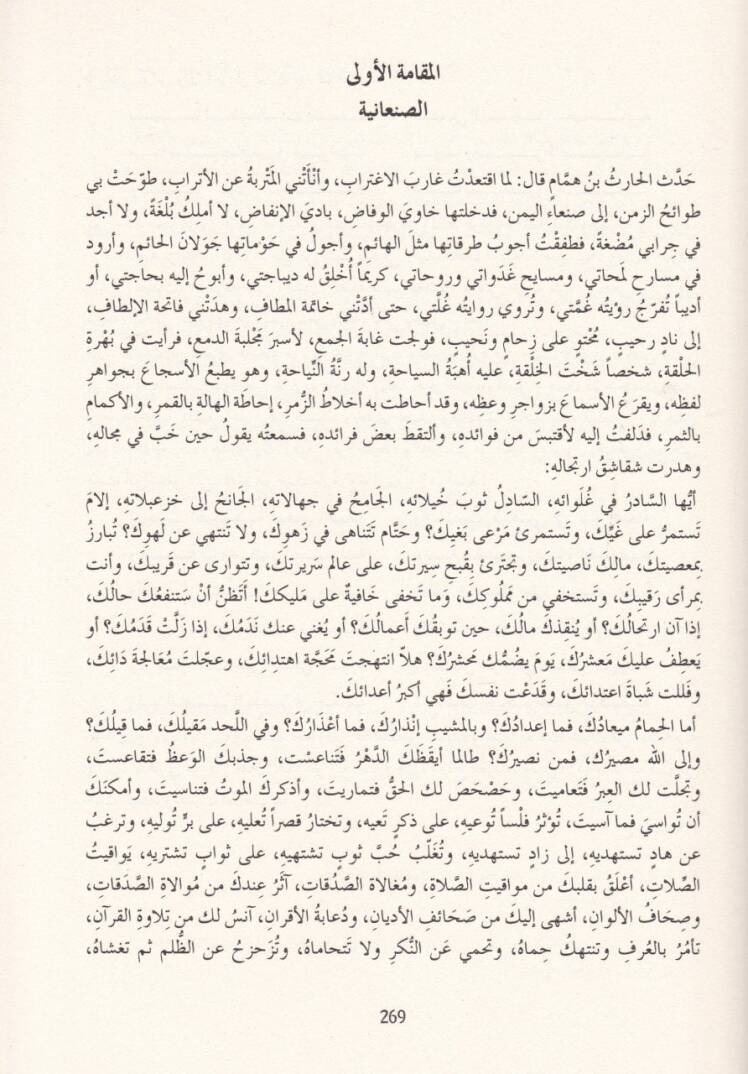 المقامة الأولى
الصنعانية
حَدَّث الحارثُ بنُ همَّامٍ قال: لما اقتعدْتُ غاربَ الاغترابِ، وأنْأَتْني المَتْربةُ عن الأترابِ، طوّحَتْ بي
طوائحُ الزمنِ، إلى صنعاءِ اليمنِ، فدخلتها خاويَ الوفاضِ، باديَ الإنفاضِ، لا أملكُ بُلْغَةً، ولا أجد
في جِرابي مُضْغةً، فطفِقْتُ أجوبُ طرقاتِها مثلَ الهائمِ، وأجولُ في حَوْماتِها جَوَلانَ الحائمِ، وأرود
في مسارحِ لمَحاتي، ومسايحِ غَدَواتي وروحاتي، كريماً أُخْلِقُ له ديباجتي، وأبوحُ إليه بحاجتي، أو
أديباً تُفرّجُ رؤيتُه غُمَّتي، وتُروي روايتُه غُلَّتي، حتى أدَّتْني خاتمة المطافِ، وهدَتْني فاتحة الإلطافِ،
إلى نادٍ رحيبٍ، مُحْتوٍ على زِحامٍ ونَحيبٍ، فولجت غابةَ الجمعِ، لأسبرَ مَجْلبةَ الدمعِ، فرأيت في بُهْرةِ
الحلْقةِ، شخصاً شَخْتَ الخِلْقةِ، عليه أُهبَةُ السياحةِ، وله رنَّةُ النِّياحةِ، وهو يطبعُ الأسجاعَ بجواهرِ
لفظِه، ويقرَعُ الأسماعَ بزواجرِ وعظِه، وقد أحاطت به أخلاطُ الزُّمرِ، إحاطَة الهالةِ بالقمرِ، والأكمامِ
بالثمرِ، فدَلفتُ إليه لأقتبسَ من فوائدهِ، وألتقطَ بعض فرائدهِ، فسمعتُه يقولُ حين خَبَّ في مجالهِ،
وهدرت شقاشقُ ارتجالهِ:
أيُّها السَّادرُ في غُلَوائهِ، السّادِلُ ثوبَ خُيلائهِ، الجَامِحُ في جهالاتهِ، الجَانحُ إلى خزعبلاتهِ، إلامَ
تَستمرُّ على غَيِّكَ، وتَستمرئ مَرْعى بَغيِكَ؟ وحَتَّام تَتَناهى في زَهوِكَ، ولا تَنتهي عن لَهوِكَ؟ تُبارزُ
بِمعصيتكَ، مالِكَ نَاصيتكَ، وتجتَرئ بِقُبحِ سِيرتكَ، على عالم سَريرتكَ، وتتوارى عن قَريبكَ، وأنت
بِمرأى رَقيبِكَ، وتَستخفي من مَملُوكِكَ، وَما تَخفى خَافيةٌ على مَليككَ! أَتَظنُّ أنْ سَتنفعُكَ حالُكَ،
إذا آن ارتحالُكَ؟ أو يُنقِذكَ مالُكَ، حين توبقُكَ أعمالُكَ؟ أو يُغني عنك نَدَمُكَ، إذا زَلَّتْ قَدَمُكَ؟ أو
يَعطِفُ عليكَ مَعشرُكَ، يَومَ يضُمُّك محشرُكَ؟ هلاّ انتهجتَ مَحَجَّة اهتِدائِكَ، وعجّلتَ مُعَالجةَ دَائِكَ،
وفَللت شَباةَ اعتدائكَ، وقَدَعْت نفسكَ فَهي أكبرُ أعدائكَ.
أما الحِمامُ ميعادُكَ، فما إعدادُكَ؟ وبالمشيبِ إنْذارُكَ، فما أعْذارُكَ؟ وفي اللَّحد مَقيلُكَ، فما قِيلُكَ؟
وإلى الله مصيرُك، فمن نصيرُكَ؟ طالما أيقَظَكَ الدَّهْرُ فَتَناعسْت، وجذبكَ الوَعظُ فتقاعست،
وتجلَّت لك العِبرُ فَتَعاميتَ، وحَصْحَصَ لك الحقُّ فتماريتَ، وأذكركَ الموتُ فتناسيتَ، وأمكنَكَ
أن تُواسيَ فما آسيتَ، تُؤثرُ فلْساً تُوعيهِ، على ذكرٍ تَعيه، وتختارُ قصراً تُعليهِ، على برٍّ تُوليهِ، وترغبُ
عن هادٍ تستهديهِ، إلى زادٍ تستهديهِ، وتُغَلّبُ حُبَّ ثوبٍ تشتهيهِ، على ثوابٍ تشتريهِ، يَواقيتُ
الصِّلاتِ، أعْلَقُ بقلبكَ من مواقيتِ الصَّلاةِ، ومُغالاة الصَّدُقاتِ، آثَرُ عِندكَ من مُوالاةِ الصَّدَقاتِ،
وصِحَافُ الألوانِ، أشهى إليكَ من صَحَائفِ الأديانِ، ودُعابةُ الأقرانِ، آنسُ لك من تِلاوةِ القرآنِ،
تأمُرُ بالعُرفِ وتنتهكُ حِماهُ، وتحمي عَن النُّكرِ ولا تَتحاماهُ، وتُزَحزحُ عن الظُّلم ثم تغشاهُ،
269